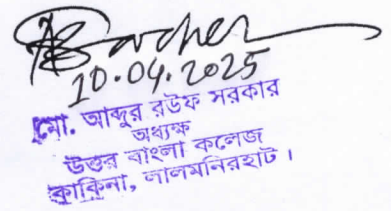 10.04.2025
মো. আব্দুর রউফ সরকার
অধ্যক্ষ
উত্তর বাংলা কলেজ
কাকিনা, লালমনিরহাট।